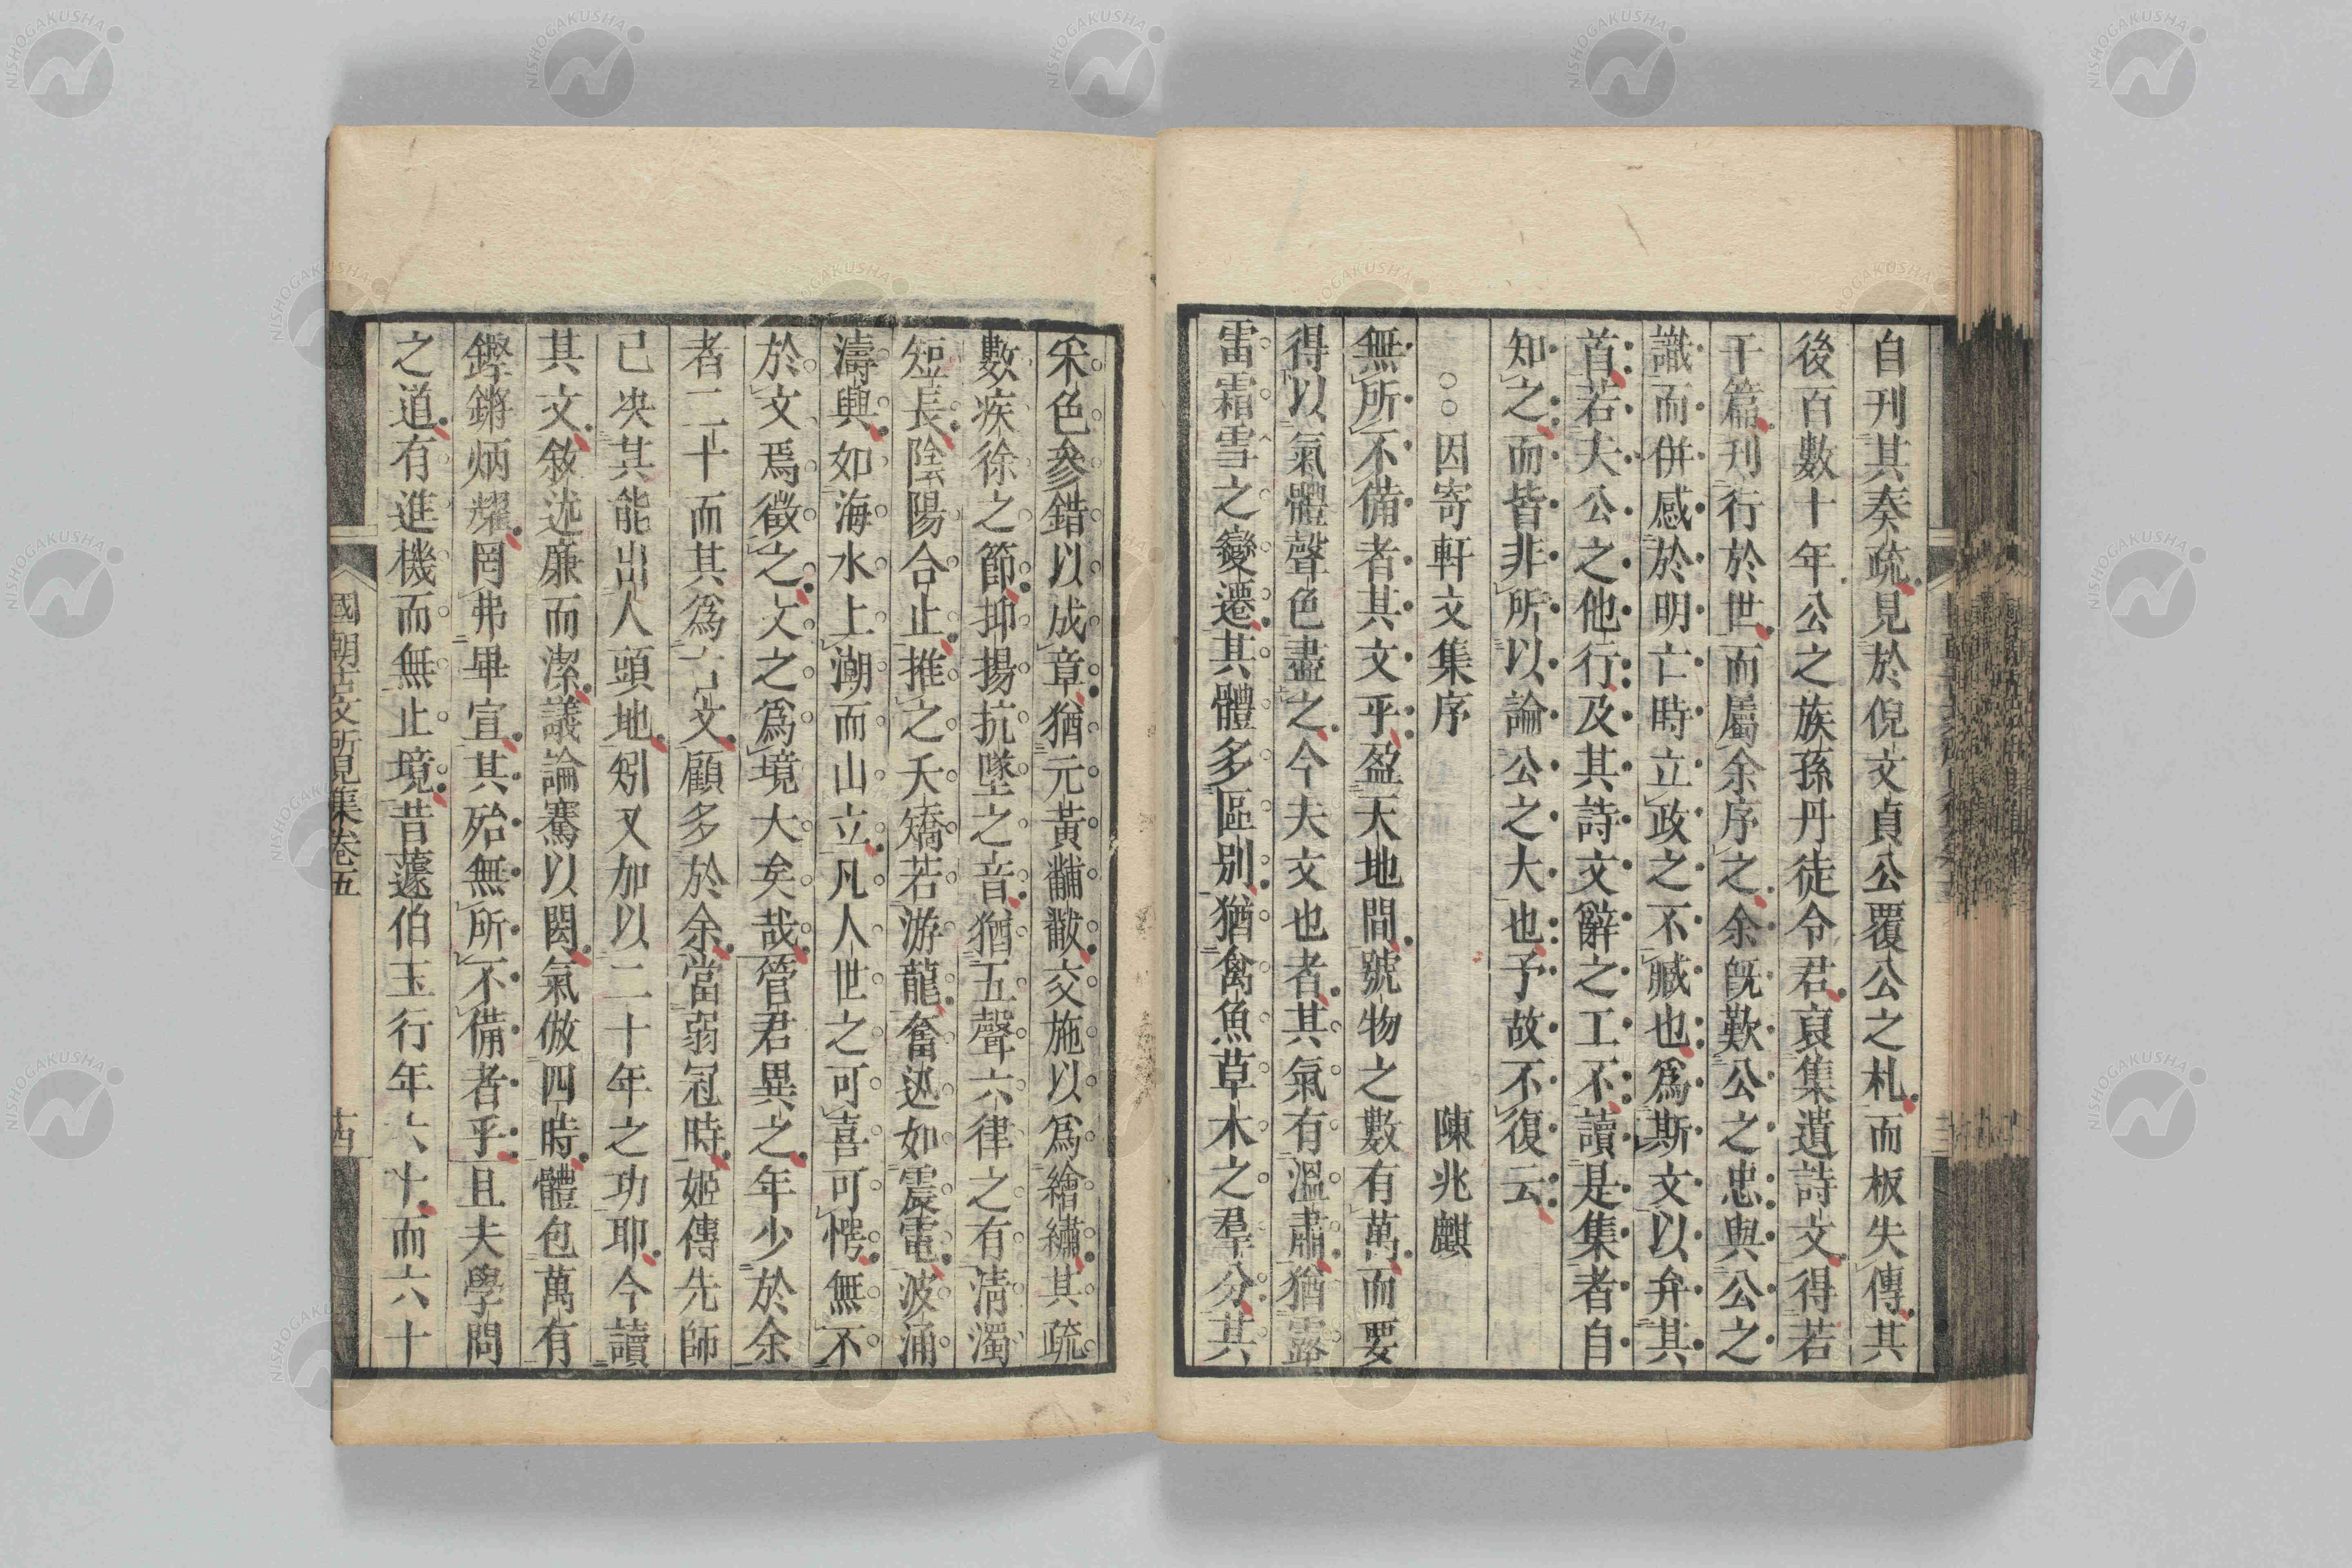 自刊其奏疏見於倪文貞公覆公之札而板失傳其
後百數十年公之族孫丹徒令君裒集遺詩文得若
干篇刊行於世而屬余序之余旣歎公之忠與公之
識而併感於明亡時立政之不臧也爲斯文以弁其
首若夫公之他行及其詩文辭之工不讀是集者自
知之而皆非所以論公之大也予故不復云
○○因寄軒文集序
陳兆麒
無所不備者其文乎盈天地間號物之數有萬而要
得以氣體聲色盡之今夫文也者其氣有溫肅猶露
雷霜雪之變遷其體多區別猶禽魚草木之羣分其
采色參錯以成章猶元黃黼黻交施以爲繪繡其疏
數疾徐之節抑揚抗墜之音猶五聲六律之有淸濁
短長陰陽合止推之夭矯若游龍奮迅如震電波涌
濤興如海水上潮而山立凡人世之可喜可愕無不
於文焉徵之文之爲境大矣哉管君異之年少於余
者二十而其爲古文顧多於余當弱冠時姬傳先師
已決其能出人頭地矧又加以二十年之功耶今讀
其文敘述廉而潔議論騫以閎氣倣四時體包萬有
鏗鏘炳燿罔弗畢宣其殆無所不備者乎且夫學問
之道有進機而無止境昔蘧伯玉行年六十而六十
國朝古文所見集卷五
十四
NISHOGAKUSHA